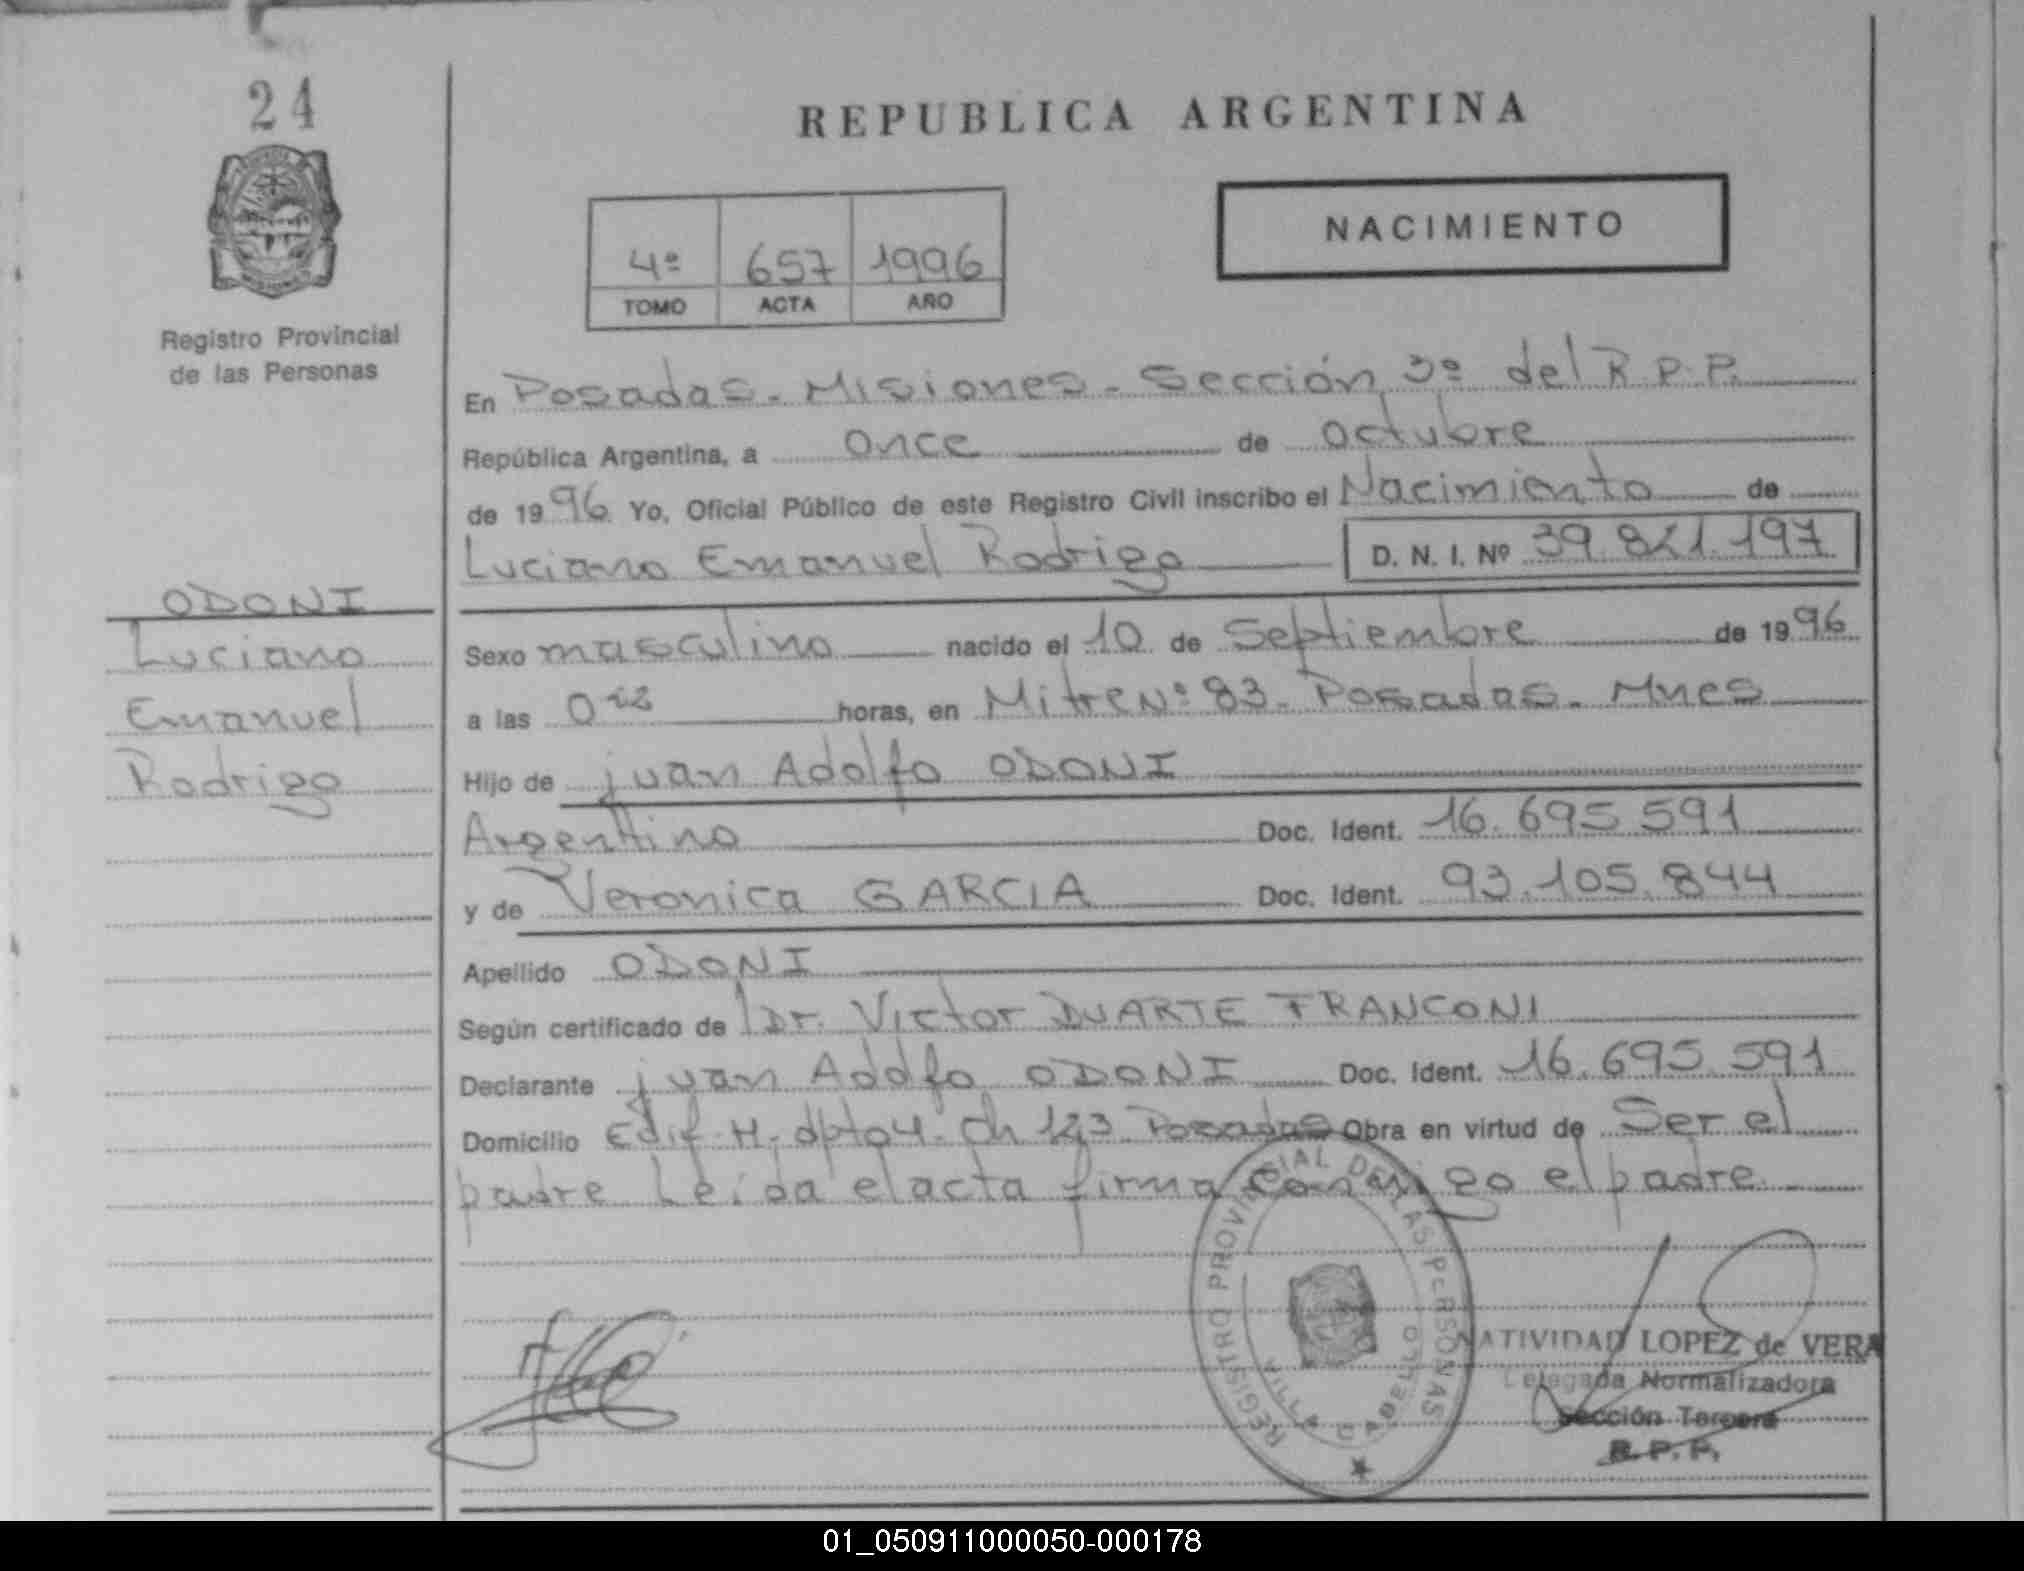 24
REPUBLICA ARGENTINA
NACIMIENTO
4º 657 1996
TOMO ACTA AÑO
Registro Provincial
de las Personas
En Posadas - Misiones - Sección 3º del R.P.P.
República Argentina, a once de octubre
de 1996 Yo, Oficial Público de este Registro Civil inscribo el Nacimiento de
Luciano Emanuel Rodrigo D. N. I. Nº 39.821.197
ODONI
Luciano
Emanuel
Rodrigo
Sexo masculino nacido el 10 de Septiembre de 1996
a las 0 horas, en Mitre Nº 83 - Posadas - Mnes
Hijo de juan Adolfo ODONI
Argentino Doc. Ident. 16.695.591
y de Veronica GARCIA Doc. Ident. 93.105.844
Apellido ODONI
Según certificado de Dr. Victor DUARTE FRANCONI
Declarante juan Adolfo ODONI Doc. Ident. 16.695.591
Domicilio Edif. H. dpto 4. Ch 123 Posadas Obra en virtud de Ser el
padre Leída el acta firma conmigo el padre
REGISTRO PROVINCIAL DE LAS PERSONAS
VILLA CABELLO
NATIVIDAD LOPEZ de VERA
Delegada Normalizadora
Sección Tercera
R. P. P.
01_050911000050-000178